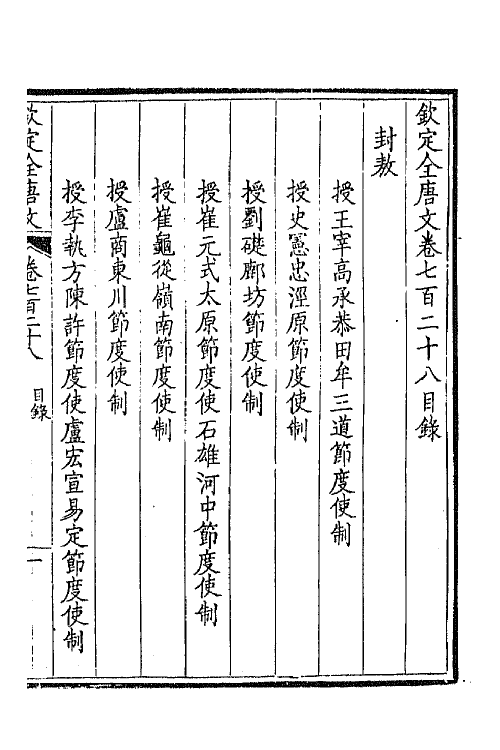 欽定全唐文卷七百二十八目錄
封敖
授王宰高承恭田牟三道節度使制
授史憲忠涇原節度使制
授劉礎鄜坊節度使制
授崔元式太原節度使石雄河中節度使制
授崔龜從嶺南節度使制
授盧商東川節度使制
授李執方陳許節度使盧宏宣易定節度使制
欽定全唐文 卷七百二十八 目錄 一